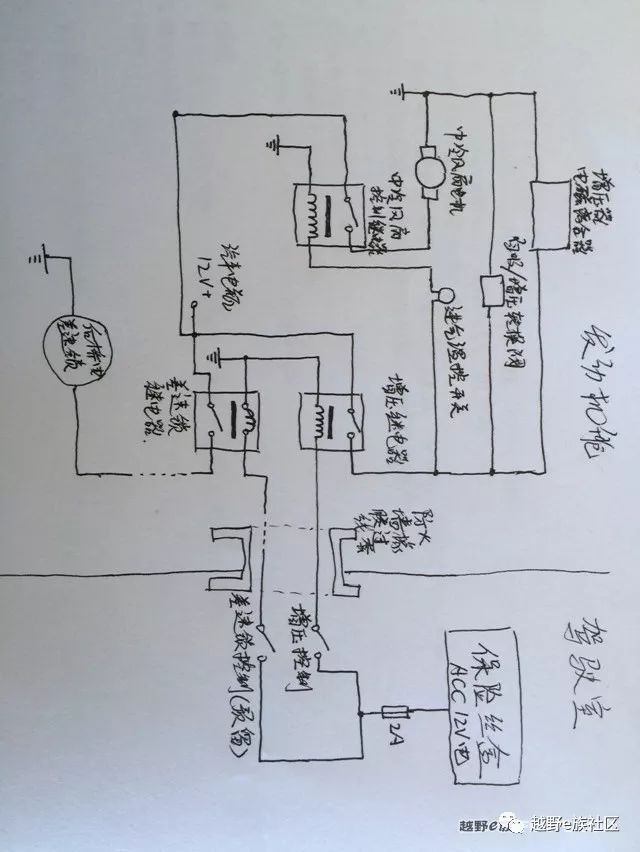 增压器
电磁离合器
中冷风扇电机
中冷风扇
控制继电器
自吸/增压转换阀
进气温控开关
发动机舱
汽车电瓶
12V+
后桥电
差速锁
差速锁
继电器
增压继电器
防火
墙橡
胶过
线套
驾驶室
增压控制
差速锁控制(预留)
保险丝盒
ACC 12V电
2A
越野e族
越野e族社区